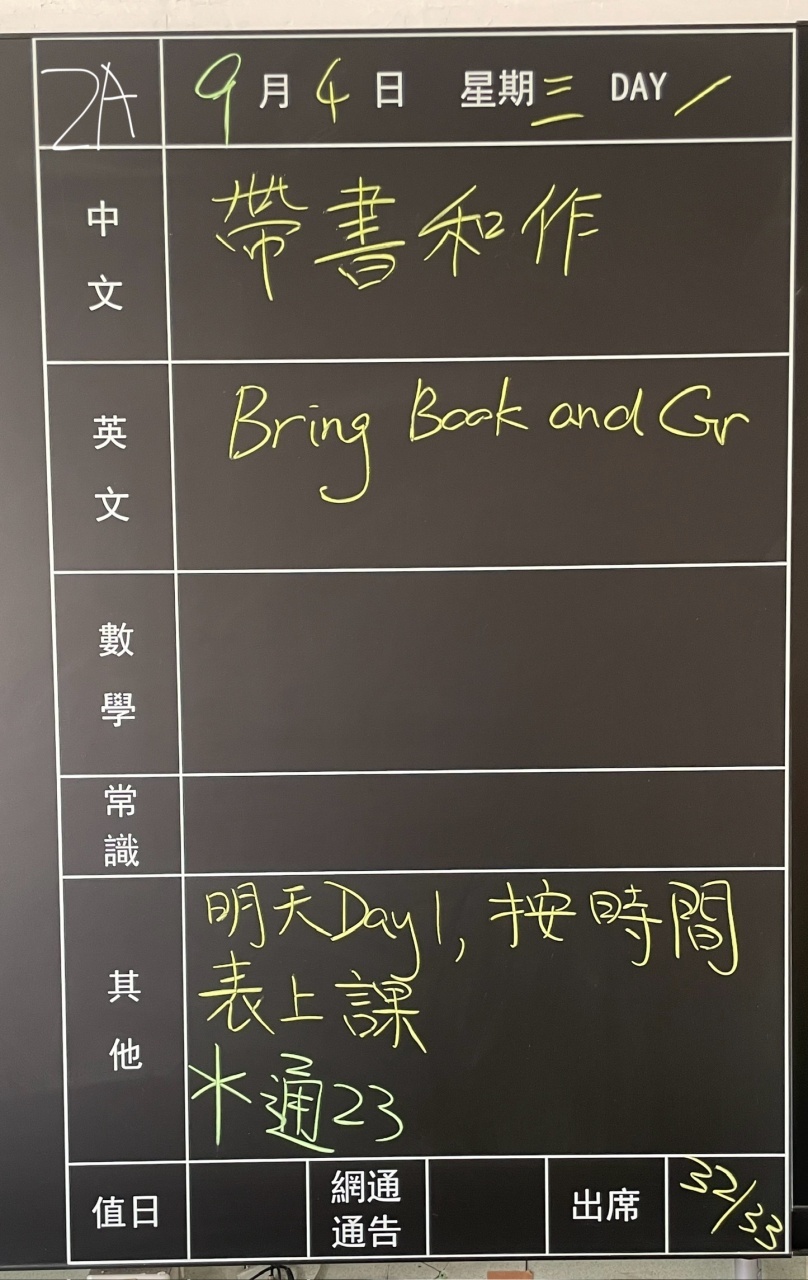 2A 9月4日 星期三 DAY /
中文 帶書和作
英文 Bring Book and Gr
數學
常識
其他 明天Day1, 按時間
表上課
*通23
值日 網通通告 出席 32/33